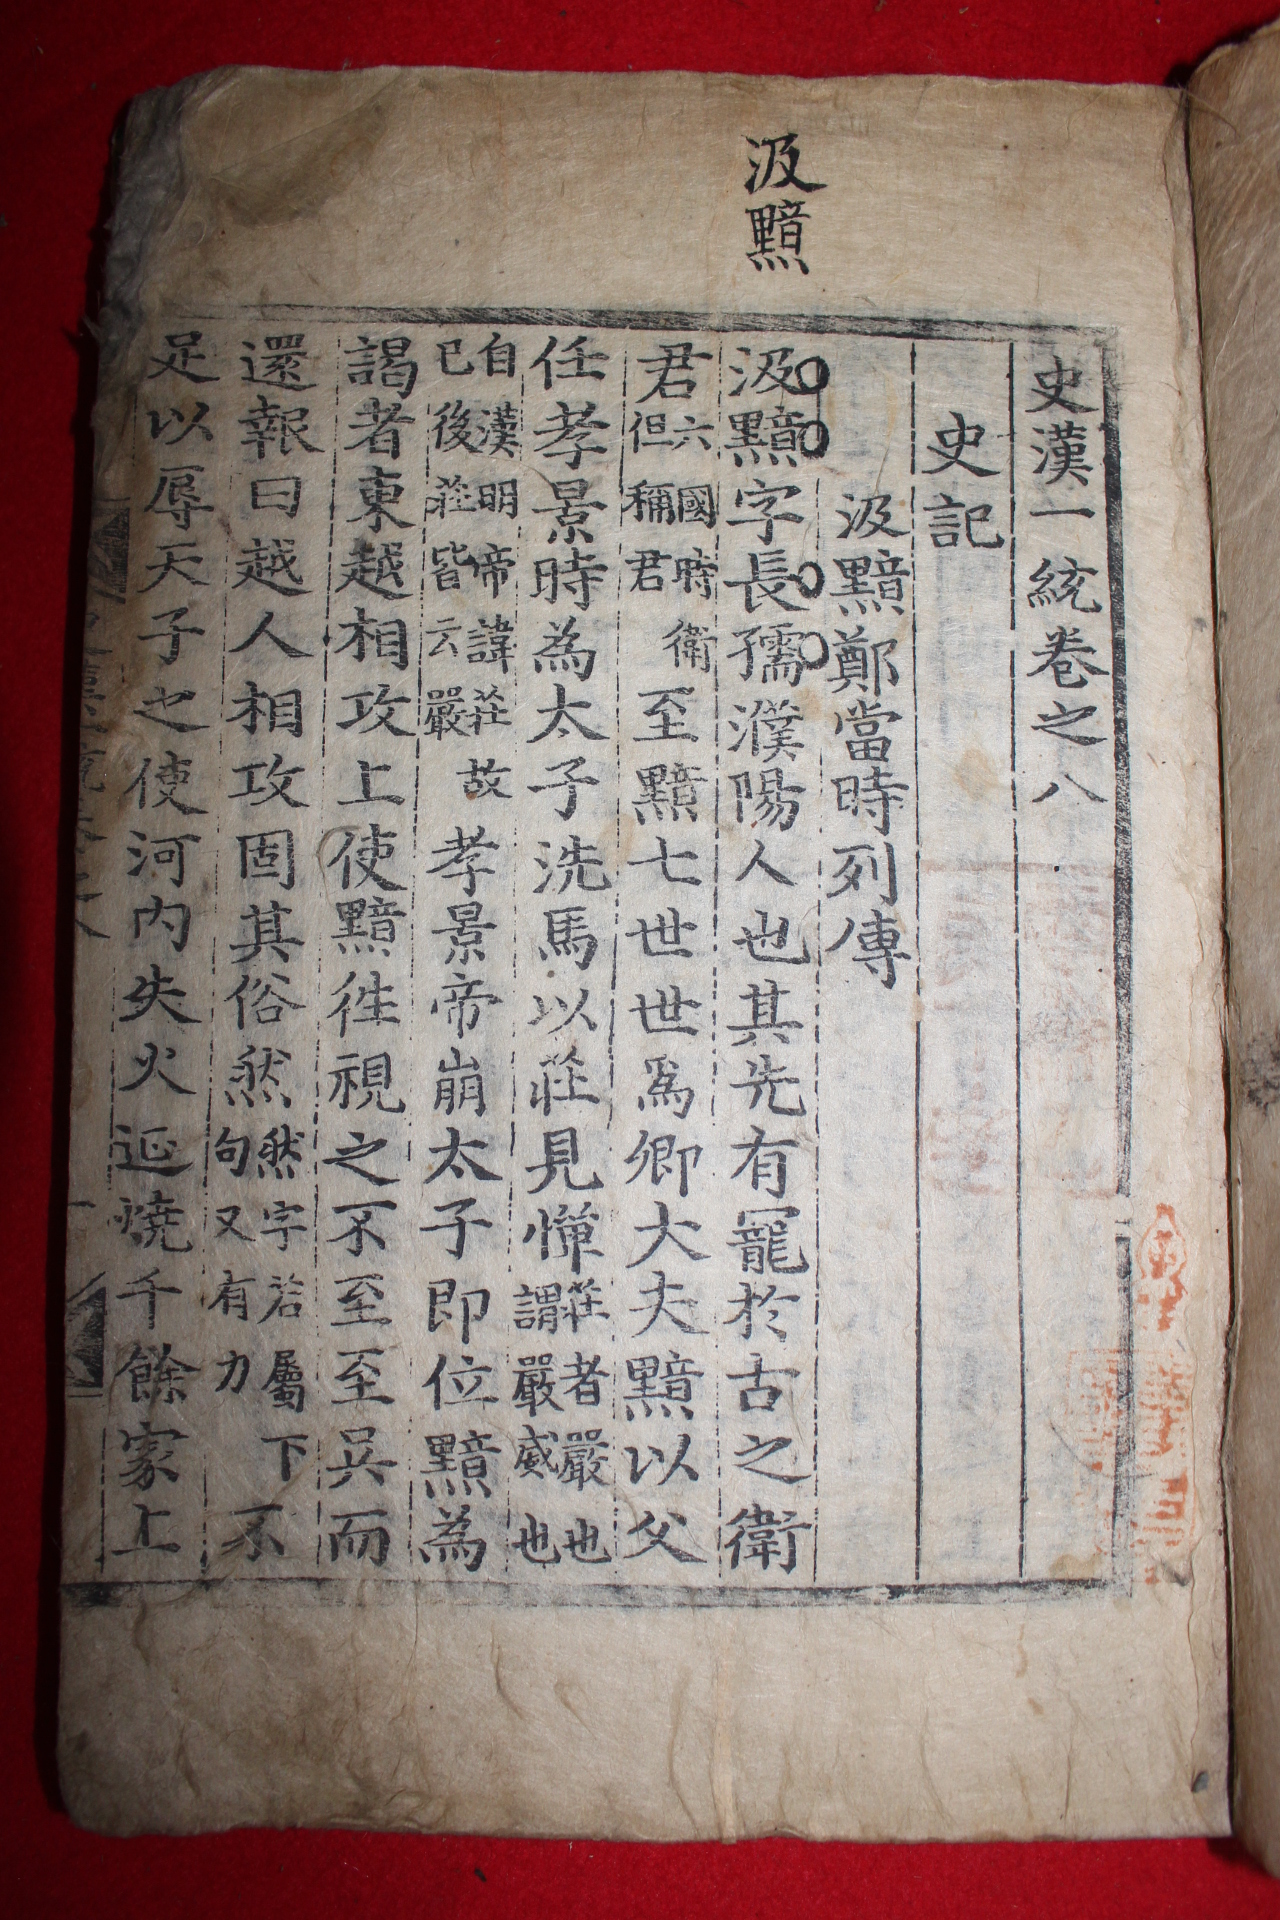 汲黯
史漢一統卷之八
史記
汲黯鄭當時列傳
汲黯字長孺濮陽人也其先有寵於古之衛
君六國時衛但稱君至黯七世世爲卿大夫黯以父
任孝景時為太子洗馬以莊見憚莊者嚴也謂嚴威也
自漢明帝諱莊故已後莊皆云嚴孝景帝崩太子即位黯為
謁者東越相攻上使黯徃視之不至至吳而
還報曰越人相攻固其俗然然字若屬下句又有力不
足以辱天子之使河內失火延燒千餘家上